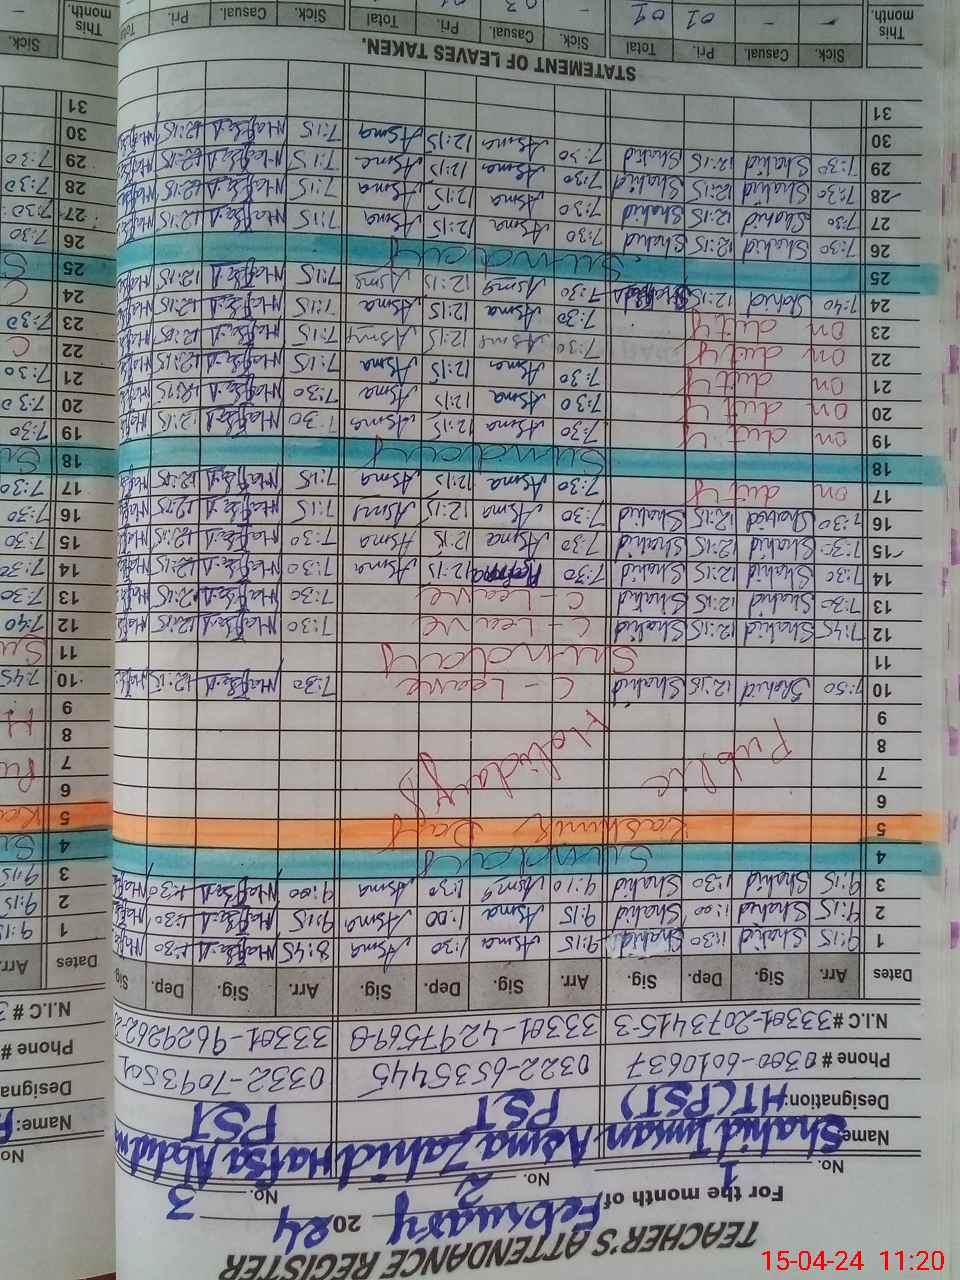 TEACHER'S ATTENDANCE REGISTER
For the month of February 2024
No. 1 No. 2 No. 3
Name: Shahid Imran Asma Zahid Hafsa Abdul
Designation: HT(PST) PST PST
Phone # 0300-6010637 0322-6535445
N.I.C # 33301-2073415-3 33301-4297569-0
Dates Arr. Sig. Dep. Sig. Arr. Sig. Dep. Sig. Arr. Sig. Dep. Sig.
1 9:15 Shahid 1:30 Shahid 9:15 Asma 1:30 Asma 8:45 Hafsa.A 1:30 Hafsa
2 9:15 Shahid 1:00 Shahid 9:15 Asma 1:00 Asma 9:15 Hafsa.A 1:30 Hafsa
3 9:15 Shahid 1:30 Shahid 9:10 Asma 1:30 Asma 9:00 Hafsa.A 1:30 Hafsa
4 Sunday
5 Kashmir Day
6
7 Public
8 Holidays
9
10 7:50 Shahid 12:15 Shahid C-Leave 7:30 Hafsa.A 12:15 Hafsa
11 Sunday
12 7:45 Shahid 12:15 Shahid C-Leave 7:30 Hafsa.A 12:15 Hafsa
13 7:30 Shahid 12:15 Shahid C-Leave 7:30 Hafsa.A 12:15 Hafsa
14 7:30 Shahid 12:15 Shahid 7:30 12:15 Asma 7:30 Hafsa.A 12:15 Hafsa
15 7:30 Shahid 12:15 Shahid 7:30 Asma 12:15 Asma 7:30 Hafsa.A 12:15 Hafsa
16 7:30 Shahid 12:15 Shahid 7:30 Asma 12:15 Asma 7:15 Hafsa.A 12:15 Hafsa
17 on duty 7:30 Asma 12:15 Asma 7:15 Hafsa.A 12:15 Hafsa
18 Sunday
19 on duty 7:30 Asma 12:15 Asma 7:30 Hafsa.A 12:15 Hafsa
20 on duty 7:30 Asma 12:15 Asma 7:30 Hafsa.A 12:15 Hafsa
21 on duty 7:30 Asma 12:15 Asma 7:15 Hafsa.A 12:15 Hafsa
22 on duty 7:30 Asma 12:15 Asma 7:15 Hafsa.A 12:15 Hafsa
23 on duty 7:30 Asma 12:15 Asma 7:15 Hafsa.A 12:15 Hafsa
24 7:40 Shahid 12:15 7:30 Asma 12:15 Asma 7:15 Hafsa.A 12:15 Hafsa
25 Sunday
26 7:30 Shahid 12:15 Shahid 7:30 Asma 12:15 Asma 7:15 Hafsa.A 12:15 Hafsa
27 7:30 Shahid 12:15 Shahid 7:30 Asma 12:15 Asma 7:15 Hafsa.A 12:15 Hafsa
28 7:30 Shahid 12:15 Shahid 7:30 Asma 12:15 Asma 7:15 Hafsa.A 12:15 Hafsa
29 7:30 Shahid 12:15 Shahid 7:30 Asma 12:15 Asma 7:15 Hafsa.A 12:15 Hafsa
30
31
STATEMENT OF LEAVES TAKEN.
Sick. Casual. Pri. Total Sick. Casual. Pri. Total Sick. Casual. Pri.
This month. - - 01 01 - 03
No
Name:
Phone #
N.I.C #
Dates Arr.
1
2 9:15
3 9:15
4
5
6
7
8
9
10 7:45
11
12 7:40
13 7:30
14 7:30
15 7:30
16 7:30
17 7:30
18
19 7:30
20 7:30
21 7:30
22 C
23 7:30
24 C
25
26 7:30
27 7:30
28 7:30
29 7:30
30
31
Sick.
This month.
15-04-24 11:20